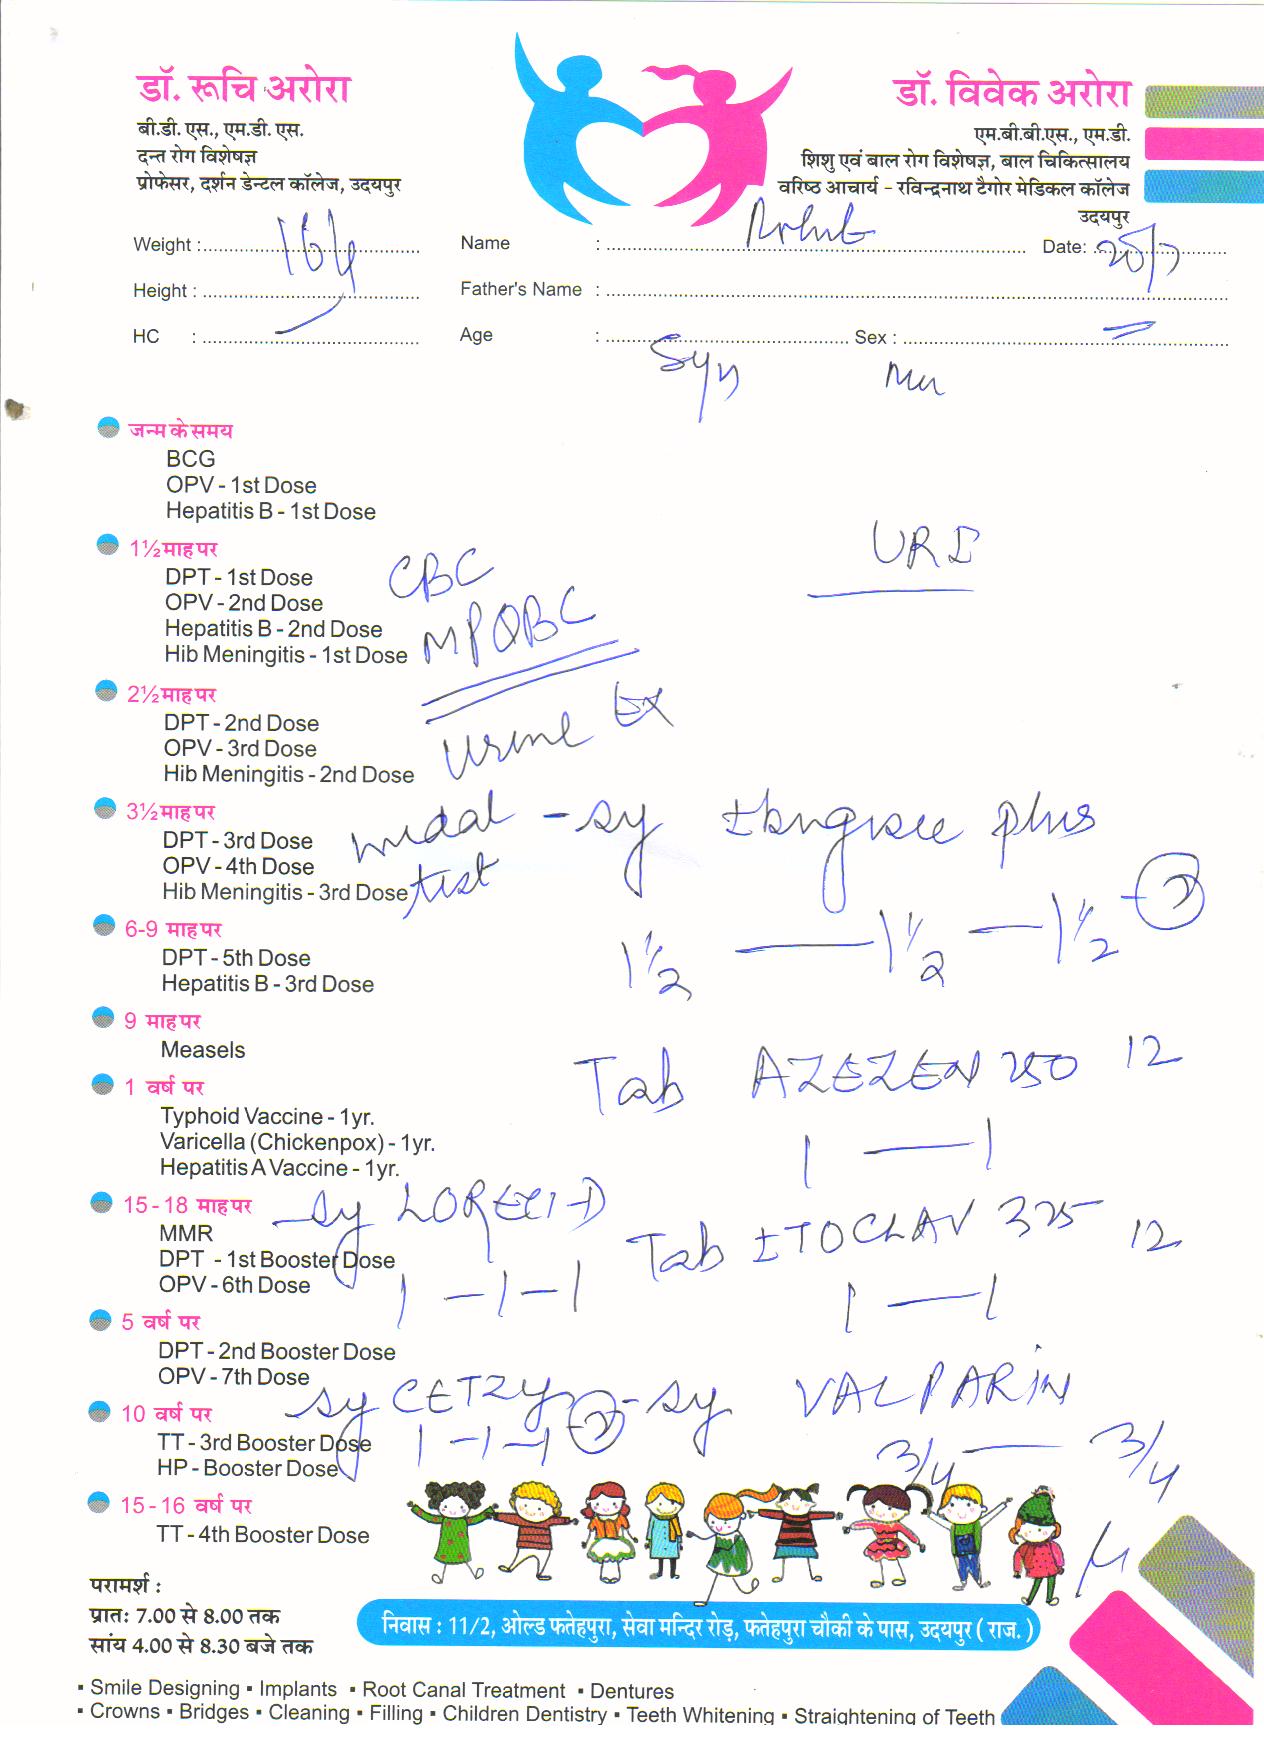 डॉ. रूचि अरोरा
बी.डी. एस., एम.डी. एस.
दन्त रोग विशेषज्ञ
प्रोफेसर, दर्शन डेन्टल कॉलेज, उदयपुर
डॉ. विवेक अरोरा
एम.बी.बी.एस., एम.डी.
शिशु एवं बाल रोग विशेषज्ञ, बाल चिकित्सालय
वरिष्ठ आचार्य - रविन्द्रनाथ टैगोर मेडिकल कॉलेज
उदयपुर
Weight : Name : Date:
Height : Father's Name :
HC : Age : Sex :
जन्म के समय
BCG
OPV - 1st Dose
Hepatitis B - 1st Dose
URI
1½ माह पर
DPT - 1st Dose
OPV - 2nd Dose
Hepatitis B - 2nd Dose
Hib Meningitis - 1st Dose
CBC
MPQBC
2½ माह पर
DPT - 2nd Dose
OPV - 3rd Dose
Hib Meningitis - 2nd Dose
Urine Ex
3½ माह पर
DPT - 3rd Dose
OPV - 4th Dose
Hib Meningitis - 3rd Dose
widal
test
- sy plus
1½ — 1½ — 1½
6-9 माह पर
DPT - 5th Dose
Hepatitis B - 3rd Dose
9 माह पर
Measels
Tab AZEZEN 250 12
1 — 1
1 वर्ष पर
Typhoid Vaccine - 1yr.
Varicella (Chickenpox) - 1yr.
Hepatitis A Vaccine - 1yr.
15 - 18 माह पर
MMR
DPT - 1st Booster Dose
OPV - 6th Dose
sy
1 — 1 — 1
Tab ITOCLAV 325 12
1 — 1
5 वर्ष पर
DPT - 2nd Booster Dose
OPV - 7th Dose
sy CETZY
1 — 1 — 1
- sy VALPARIN
3/4 — 3/4
10 वर्ष पर
TT - 3rd Booster Dose
HP - Booster Dose
15 - 16 वर्ष पर
TT - 4th Booster Dose
परामर्श :
प्रातः 7.00 से 8.00 तक
सांय 4.00 से 8.30 बजे तक
निवास : 11/2, ओल्ड फतेहपुरा, सेवा मन्दिर रोड़, फतेहपुरा चौकी के पास, उदयपुर ( राज. )
▪ Smile Designing ▪ Implants ▪ Root Canal Treatment ▪ Dentures
▪ Crowns ▪ Bridges ▪ Cleaning ▪ Filling ▪ Children Dentistry ▪ Teeth Whitening ▪ Straightening of Teeth